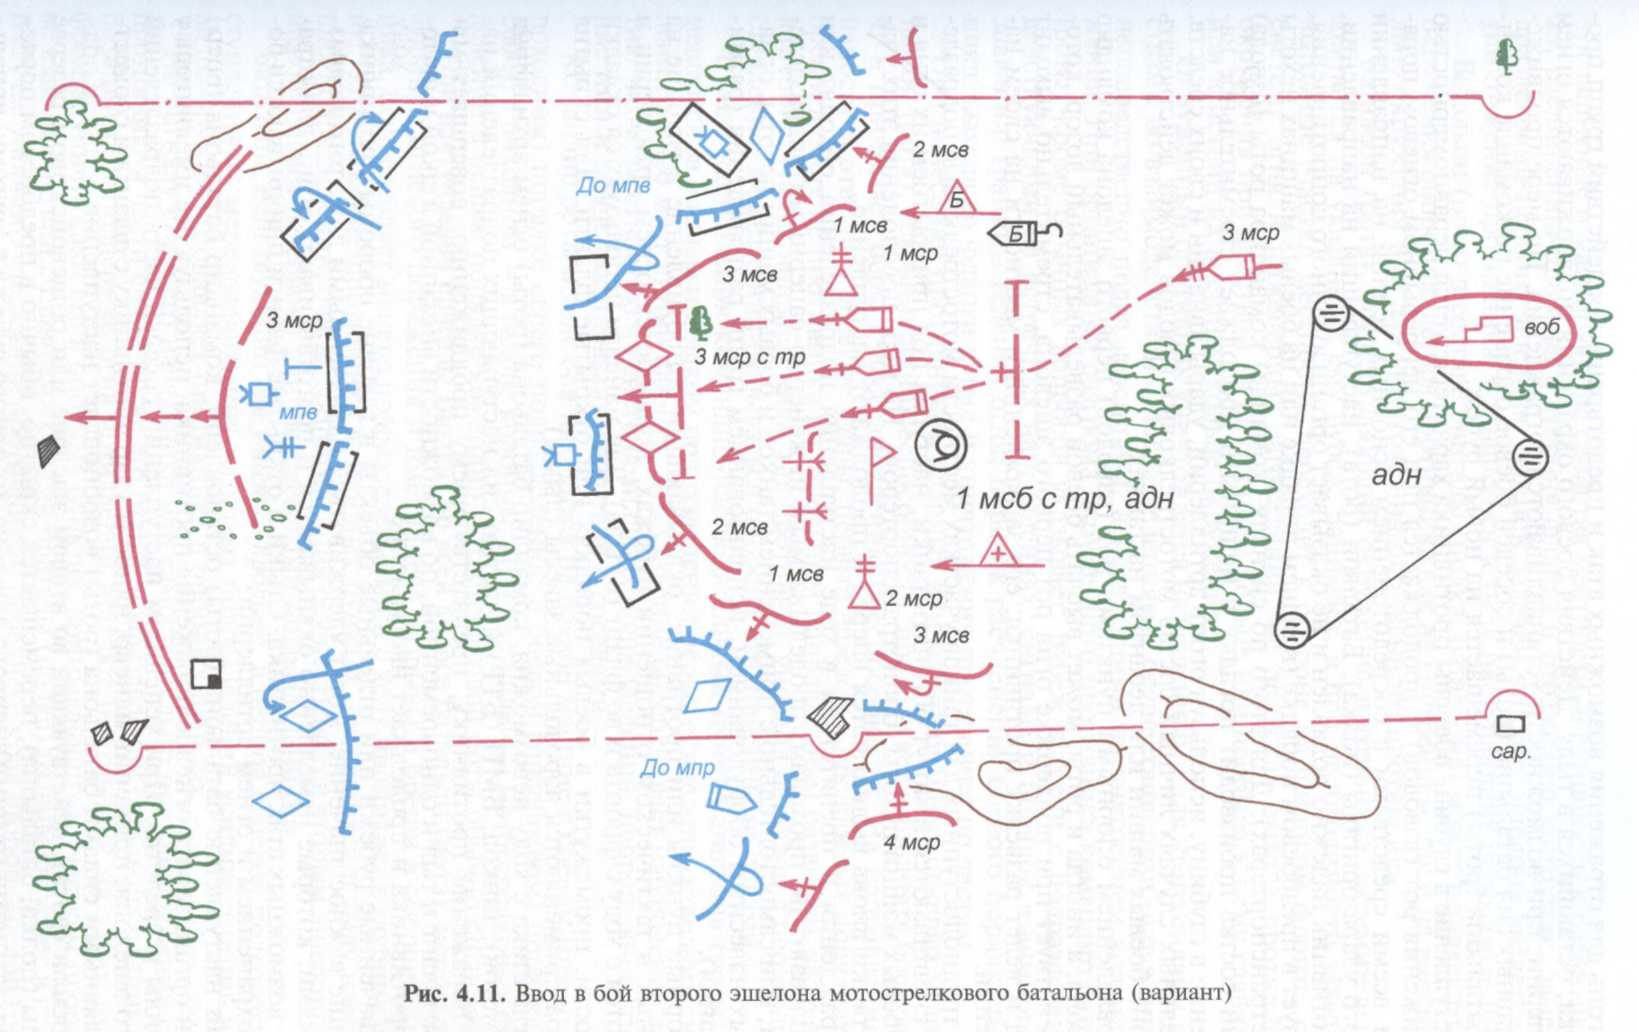 2 мсв
До мпв
Б
1 мсв
Б
3 мср
1 мср
3 мсв
3 мср
воб
3 мср с тр
мпв
адн
1 мсб с тр, адн
2 мсв
1 мсв
2 мср
3 мсв
сар.
До мпр
4 мср
Рис. 4.11. Ввод в бой второго эшелона мотострелкового батальона (вариант)